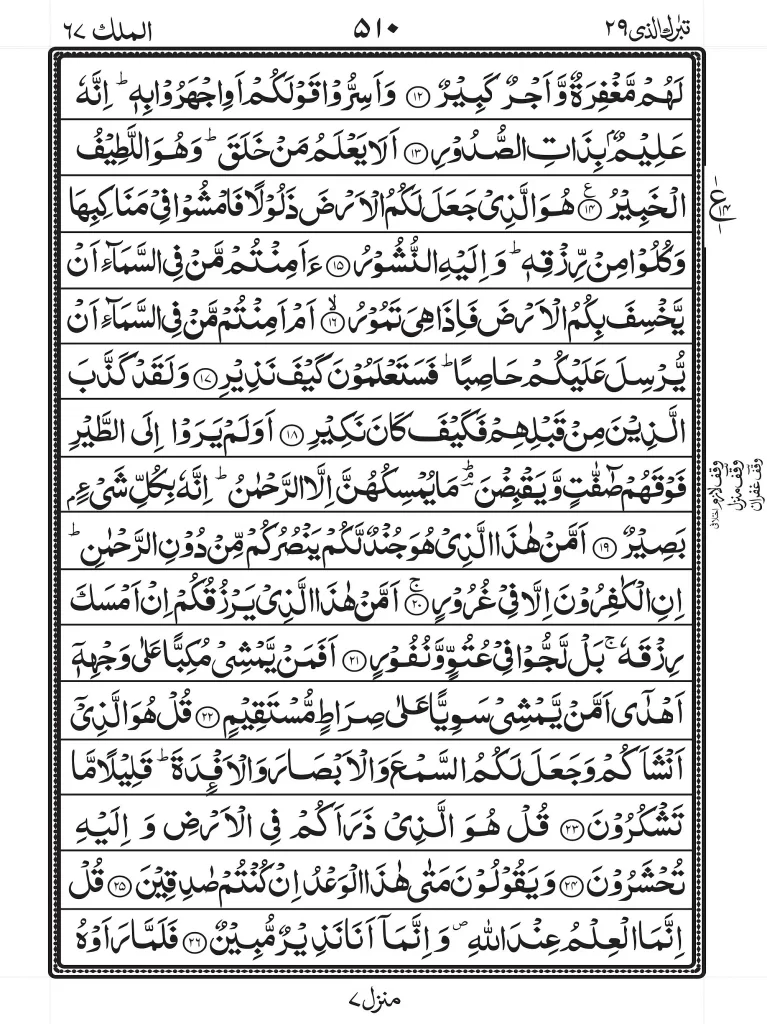 تبٰرك الذی ٢٩ ٥١٠ الملك ٦٧
لَهُمْ مَّغْفِرَةٌ وَّاَجْرٌ كَبِيْرٌ ۝١٢ وَاَسِرُّوْا قَوْلَكُمْ اَوِاجْهَرُوْا بِهٖ ؕ اِنَّهٗ
عَلِيْمٌۢ بِذَاتِ الصُّدُوْرِ ۝١٣ اَلَا يَعْلَمُ مَنْ خَلَقَ ؕ وَهُوَ اللَّطِيْفُ
الْخَبِيْرُ ۝١٤ ع هُوَ الَّذِیْ جَعَلَ لَكُمُ الْاَرْضَ ذَلُوْلًا فَامْشُوْا فِیْ مَنَاكِبِهَا
ع ١٤
وَكُلُوْا مِنْ رِّزْقِهٖ ؕ وَاِلَيْهِ النُّشُوْرُ ۝١٥ ءَاَمِنْتُمْ مَّنْ فِی السَّمَآءِ اَنْ
يَّخْسِفَ بِكُمُ الْاَرْضَ فَاِذَا هِیَ تَمُوْرُ ۝١٦ ۙ اَمْ اَمِنْتُمْ مَّنْ فِی السَّمَآءِ اَنْ
يُّرْسِلَ عَلَيْكُمْ حَاصِبًا ؕ فَسَتَعْلَمُوْنَ كَيْفَ نَذِيْرِ ۝١٧ وَلَقَدْ كَذَّبَ
الَّذِيْنَ مِنْ قَبْلِهِمْ فَكَيْفَ كَانَ نَكِيْرِ ۝١٨ اَوَلَمْ يَرَوْا اِلَی الطَّيْرِ
فَوْقَهُمْ صٰٓفّٰتٍ وَّيَقْبِضْنَ ؔۘؕ مَا يُمْسِكُهُنَّ اِلَّا الرَّحْمٰنُ ؕ اِنَّهٗ بِكُلِّ شَیْءٍۢ
وقف لازم
وقف منزل
وقف غفران
بَصِيْرٌ ۝١٩ اَمَّنْ هٰذَا الَّذِیْ هُوَ جُنْدٌ لَّكُمْ يَنْصُرُكُمْ مِّنْ دُوْنِ الرَّحْمٰنِ ؕ
اِنِ الْكٰفِرُوْنَ اِلَّا فِیْ غُرُوْرٍ ۝٢٠ ۚ اَمَّنْ هٰذَا الَّذِیْ يَرْزُقُكُمْ اِنْ اَمْسَكَ
رِزْقَهٗ ۚ بَلْ لَّجُّوْا فِیْ عُتُوٍّ وَّنُفُوْرٍ ۝٢١ اَفَمَنْ يَّمْشِیْ مُكِبًّا عَلٰی وَجْهِهٖۤ
اَهْدٰۤی اَمَّنْ يَّمْشِیْ سَوِيًّا عَلٰی صِرَاطٍ مُّسْتَقِيْمٍ ۝٢٢ قُلْ هُوَ الَّذِیْۤ
اَنْشَاَكُمْ وَجَعَلَ لَكُمُ السَّمْعَ وَالْاَبْصَارَ وَالْاَفْـِٕدَةَ ؕ قَلِيْلًا مَّا
تَشْكُرُوْنَ ۝٢٣ قُلْ هُوَ الَّذِیْ ذَرَاَكُمْ فِی الْاَرْضِ وَ اِلَيْهِ
تُحْشَرُوْنَ ۝٢٤ وَيَقُوْلُوْنَ مَتٰی هٰذَا الْوَعْدُ اِنْ كُنْتُمْ صٰدِقِيْنَ ۝٢٥ قُلْ
اِنَّمَا الْعِلْمُ عِنْدَ اللّٰهِ ص وَاِنَّمَاۤ اَنَا نَذِيْرٌ مُّبِيْنٌ ۝٢٦ فَلَمَّا رَاَوْهُ
منزل ٧